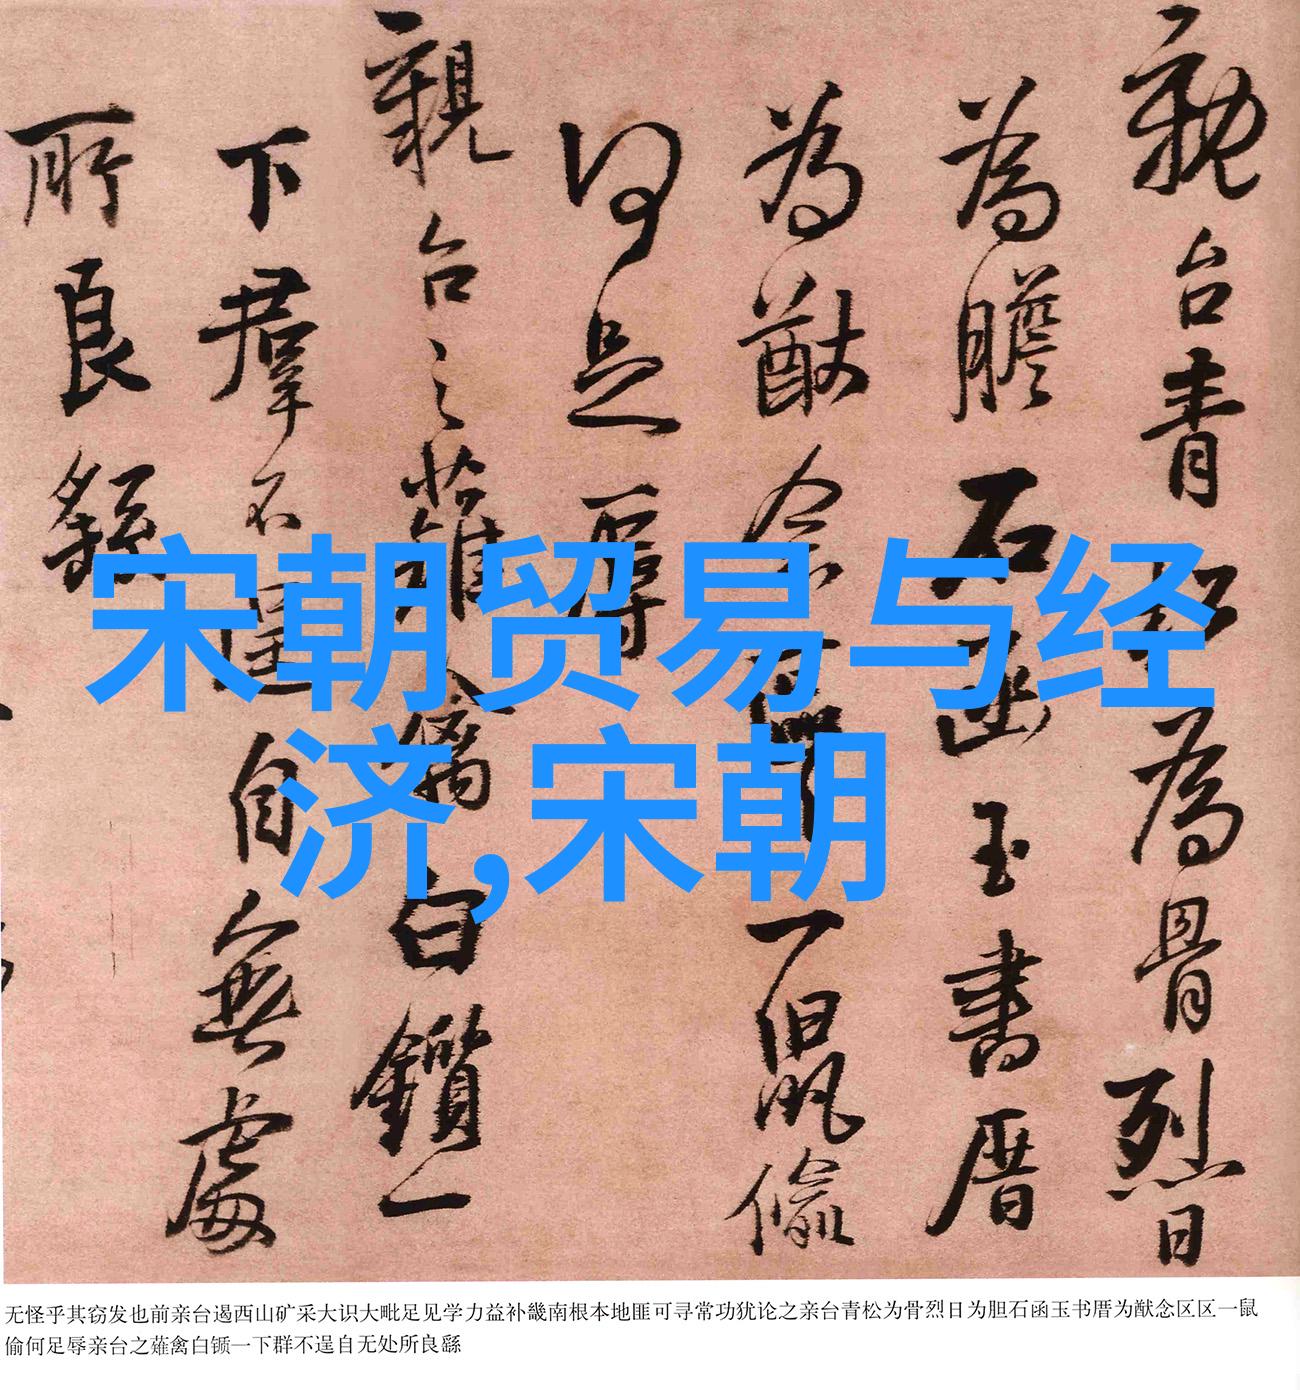 親台青松為骨烈日
為膽石函玉書厝
為猷念區區一鼠偷
何足辱
親台之薙禽白鑕一
下群不逞自無處
所良繇
宋朝贸易与经
济,宋朝
无怪乎其窃发也前亲台遏西山矿采大识大毗足见学力益补畿南根本地匪可寻常功犹论之亲台青松为骨烈日为胆石函玉书厝为猷念区区一鼠
偷何足辱亲台之薙禽白锧一下群不逞自无处所良繇